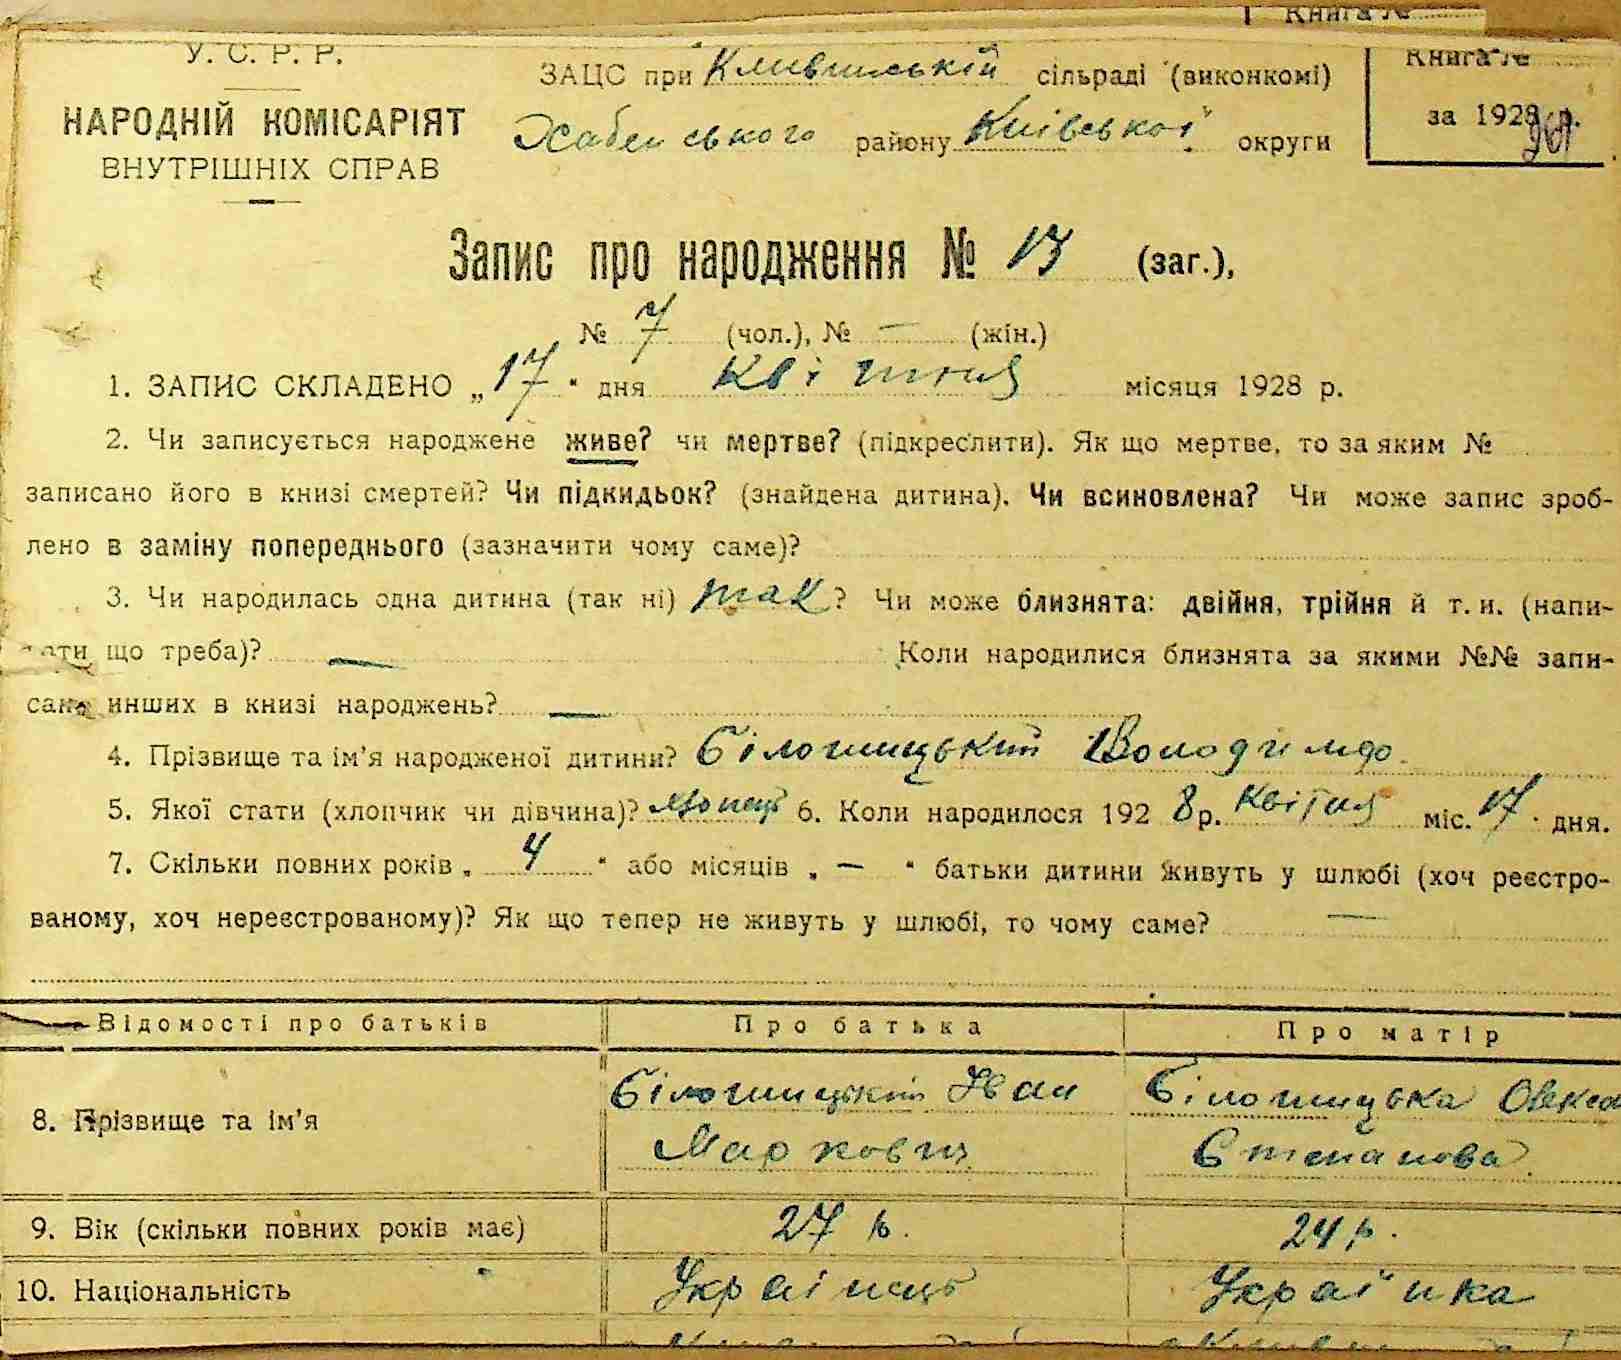 Книга №
У. С. Р. Р.
НАРОДНІЙ КОМІСАРІЯТ
ВНУТРІШНІХ СПРАВ
ЗАЦС при Кливинській сільраді (виконкомі)
Хабенського району Київської округи
Книга №
за 1928 р.
Запис про народження № 13 (заг.),
№ 7 (чол.), № — (жін.)
1. ЗАПИС СКЛАДЕНО „17“ дня квітня місяця 1928 р.
2. Чи записується народжене живе? чи мертве? (підкреслити). Як що мертве, то за яким №
записано його в книзі смертей? Чи підкидьок? (знайдена дитина). Чи всиновлена? Чи може запис зроб-
лено в заміну попереднього (зазначити чому саме)?
3. Чи народилась одна дитина (так ні) так? Чи може близнята: двійня, трійня й т. и. (напи-
сати що треба)? — Коли народилися близнята за якими №№ запи-
сано инших в книзі народжень? —
4. Прізвище та ім’я народженої дитини? Білошицький Володимир
5. Якої стати (хлопчик чи дівчина)? хлопець 6. Коли народилося 1928 р. Квітня міс. 17 дня.
7. Скільки повних років „4“ або місяців „—“ батьки дитини живуть у шлюбі (хоч реєстро-
ваному, хоч нереєстрованому)? Як що тепер не живуть у шлюбі, то чому саме? —
Відомості про батьків Про батька Про матір
8. Прізвище та ім’я Білошицький Іван Білошицька Олекса
Маркович Степанова
9. Вік (скільки повних років має) 27 р. 24 р.
10. Національність Українець Українка